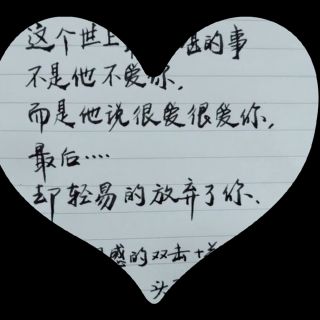 这个世上 的事
不是他不爱你,
而是他说很爱很爱你,
最后....
却轻易的放弃了你.
感的双击+关
头